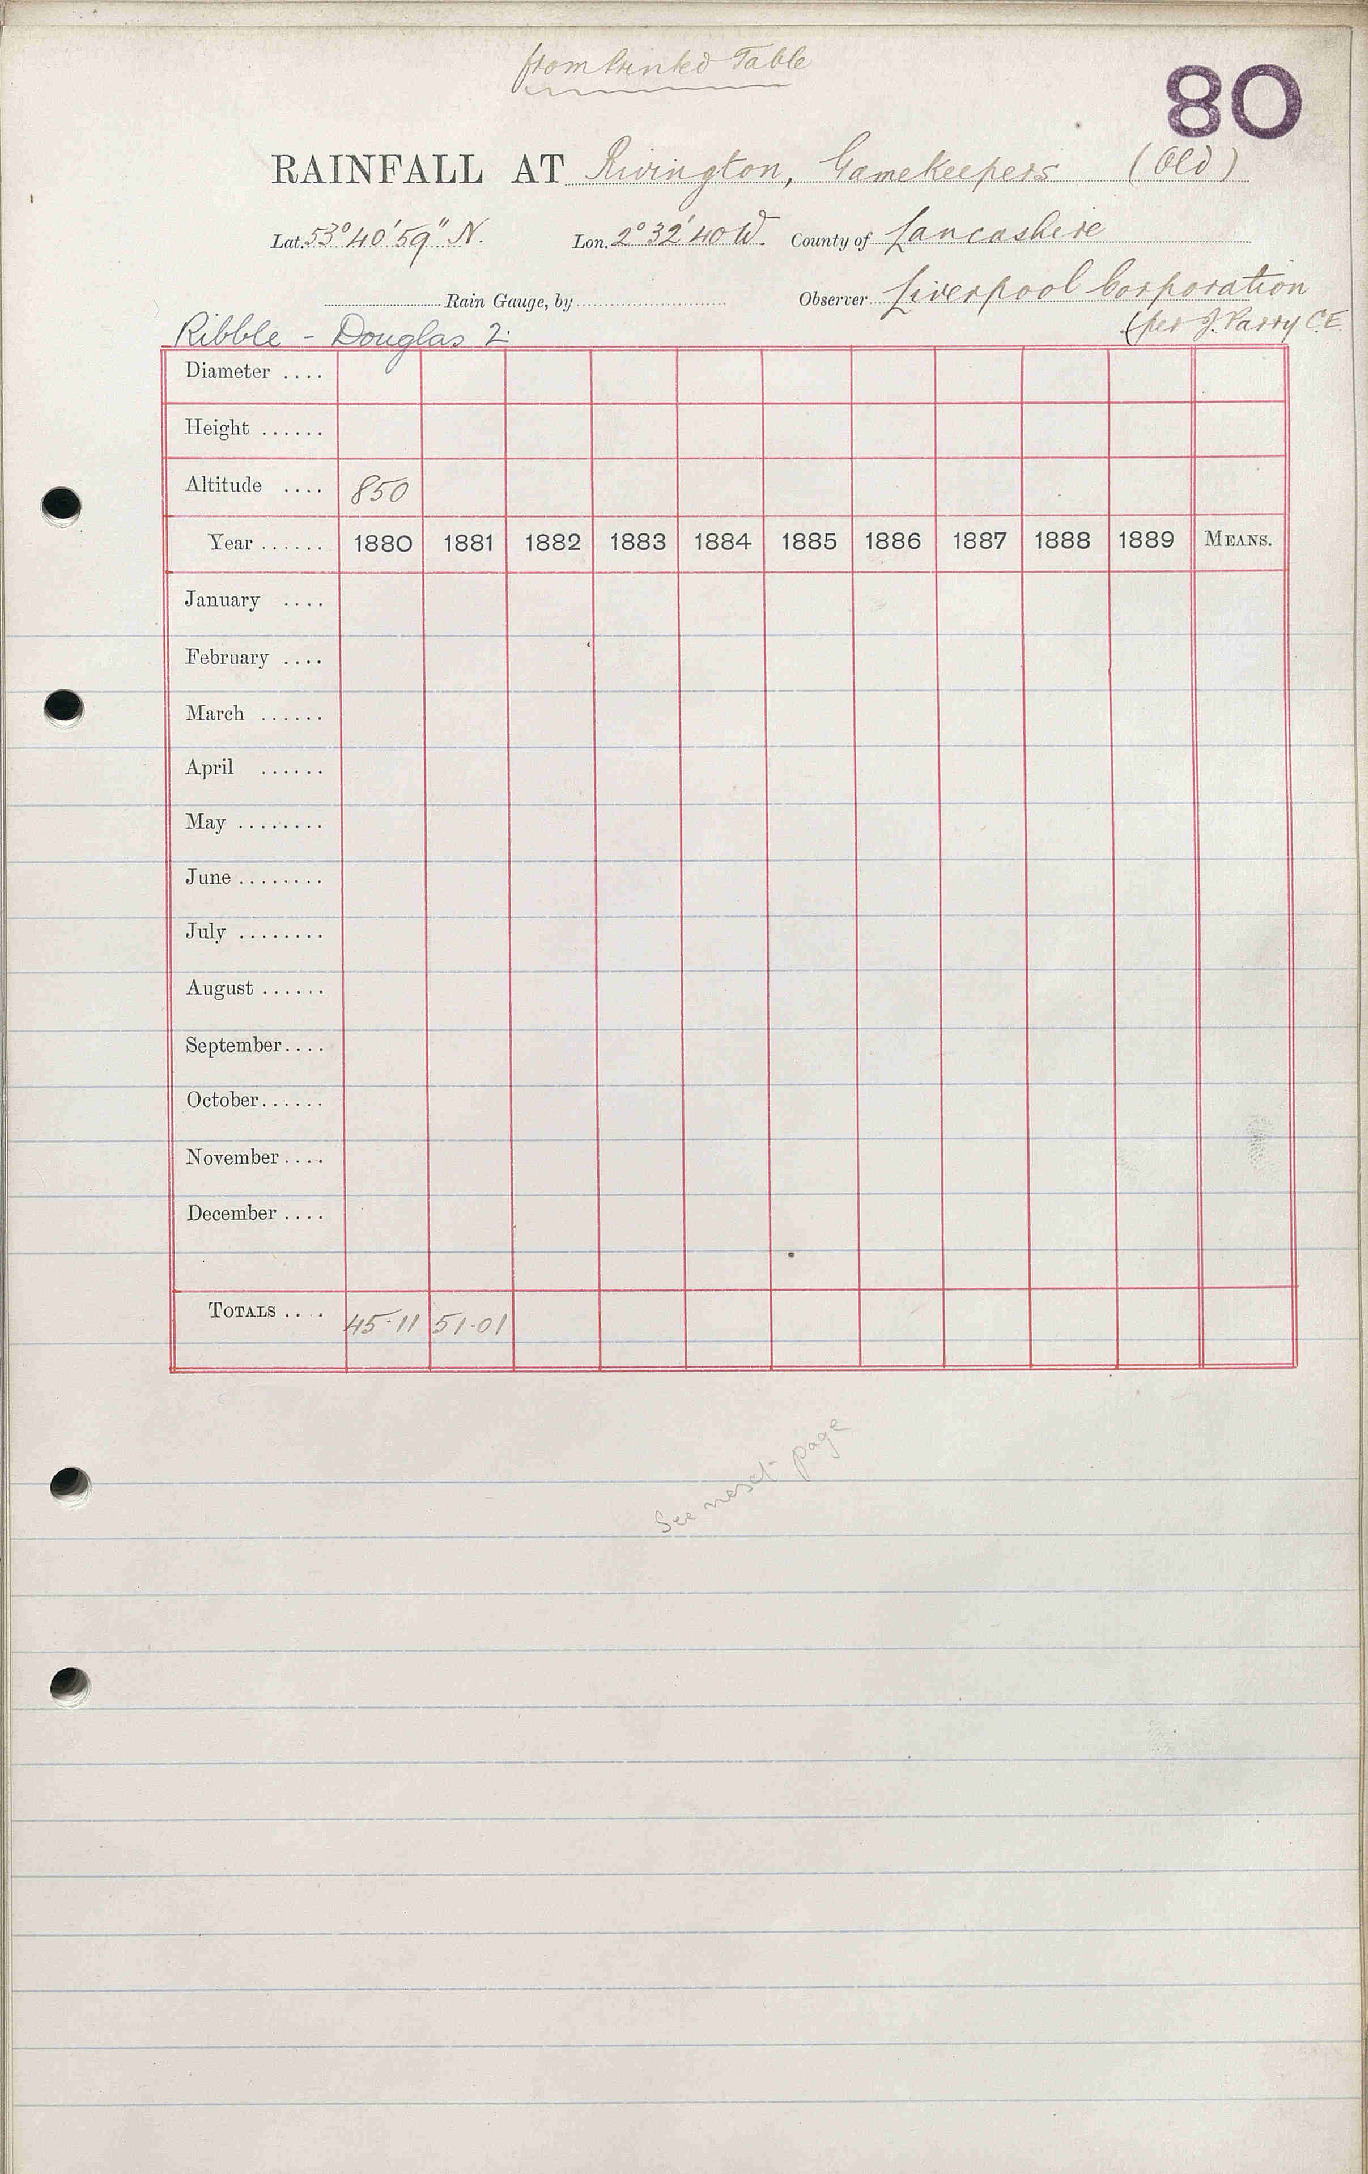 from Printed Table
80
RAINFALL AT Rivington, Gamekeepers (Old)
Lat. 53° 40' 59" N. Lon. 2° 32' 40 W. County of Lancashire
Rain Gauge, by Observer Liverpool Corporation
(per J. Parry C.E.
Ribble - Douglas 2
Diameter ....
Height ......
Altitude .... 850
Year ...... 1880 1881 1882 1883 1884 1885 1886 1887 1888 1889 MEANS.
January ....
February ....
March ......
April ......
May ........
June ........
July ........
August ......
September ....
October ......
November ....
December ....
TOTALS .... 45.11 51.01
See next page